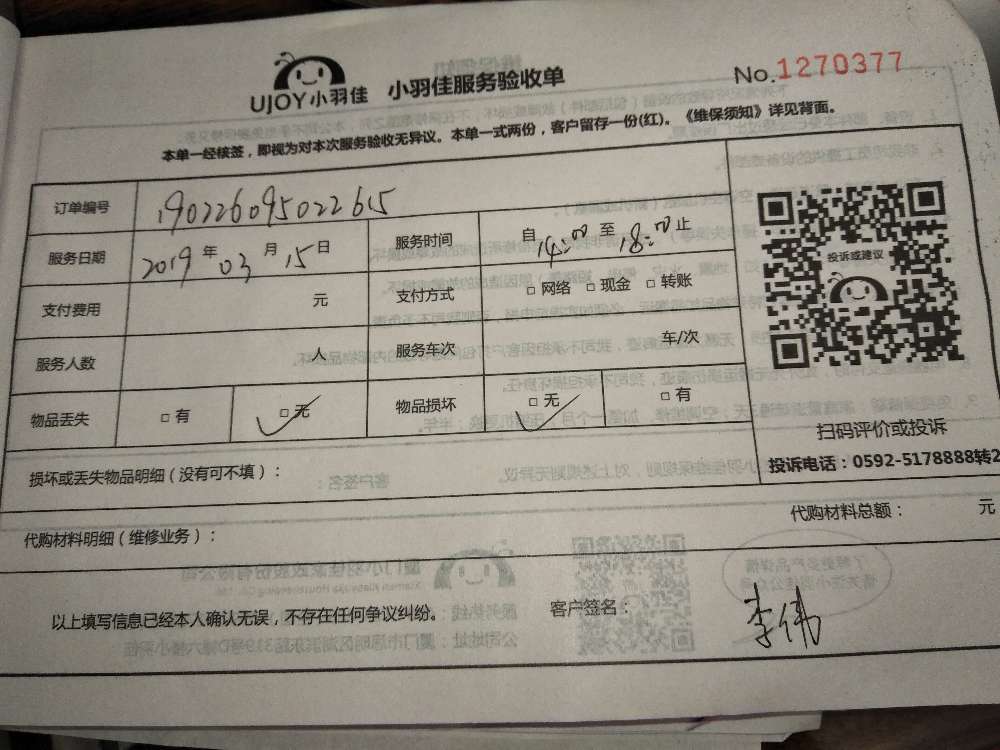 UJOY小羽佳 小羽佳服务验收单 No.1270377
本单一经核签，即视为对本次服务验收无异议。本单一式两份，客户留存一份(红)。《维保须知》详见背面。
订单编号 190226095022615
服务日期 2019年03月15日 服务时间 自14:00至18:00止
支付费用 元 支付方式 □网络 □现金 □转账
服务人数 人 服务车次 车/次
物品丢失 □有 □无 物品损坏 □无 □有
投诉或建议
扫码评价或投诉
投诉电话：0592-5178888转2
损坏或丢失物品明细（没有可不填）：
代购材料明细（维修业务）： 代购材料总额： 元
以上填写信息已经本人确认无误，不存在任何争议纠纷。 客户签名： 李伟